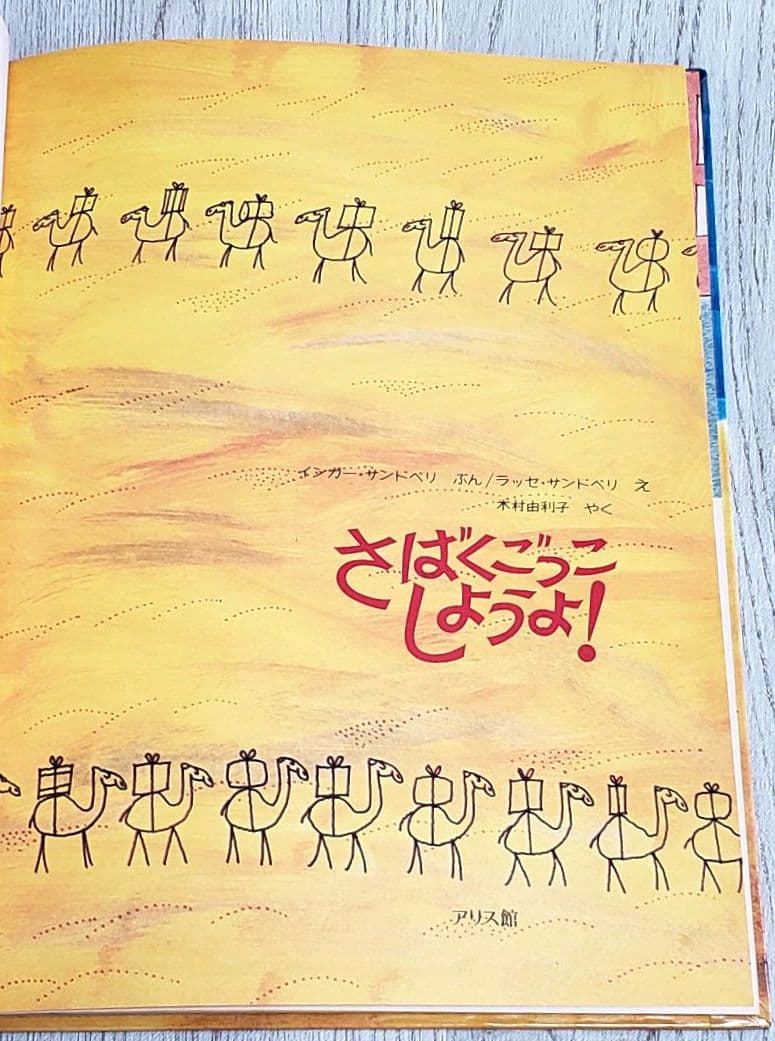 インガー・サンドベリ ぶん/ラッセ・サンドベリ え
木村由利子 やく
さばくごっこ
しようよ!
アリス館